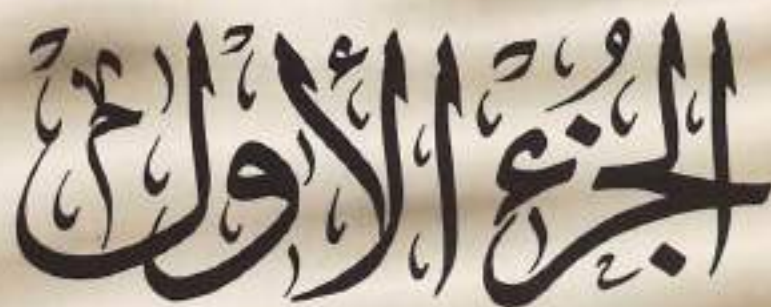 الجُزء الأول